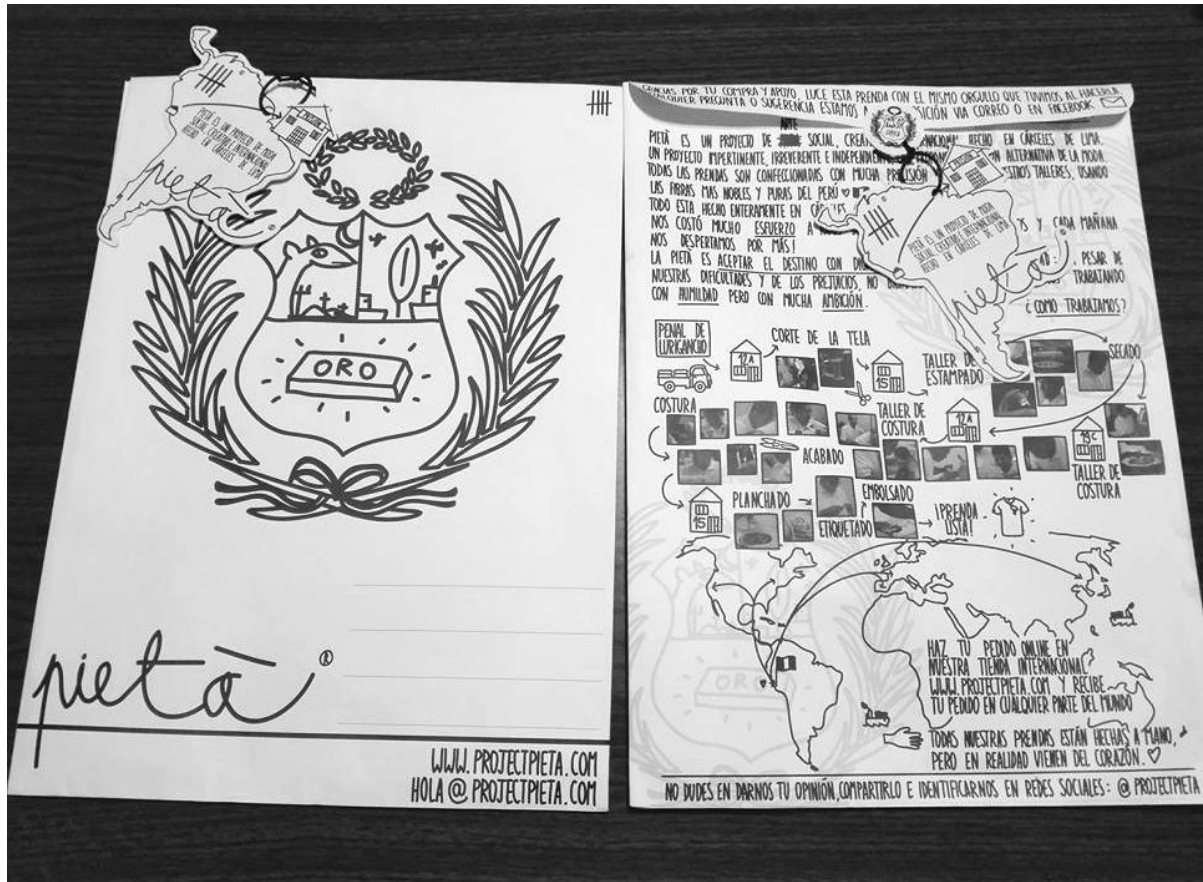 PIETÀ ES UN PROYECTO DE MODA
SOCIAL CREATIVO E INTERNACIONAL
HECHO EN CÁRCELES DE LIMA
pietà
ORO
pietà ®
WWW.PROJECTPIETA.COM
HOLA@PROJECTPIETA.COM
GRACIAS POR TU COMPRA Y APOYO, LUCE ESTA PRENDA CON EL MISMO ORGULLO QUE TUVIMOS AL HACERLA
CUALQUIER PREGUNTA O SUGERENCIA ESTAMOS A SICIÓN VIA CORREO O EN FACEBOOK
ARTE
PIETÀ ES UN PROYECTO DE SOCIAL, CREA NACIONAL HECHO EN CÁRCELES DE LIMA.
UN PROYECTO IMPERTINENTE, IRREVERENTE E INDEPENDIENTE ALTERNATIVA DE LA MODA.
TODAS LAS PRENDAS SON CONFECCIONADAS CON MUCHA PRECISIÓN STROS TALLERES, USANDO
LAS FIBRAS MAS NOBLES Y PURAS DEL PERÚ
TODO ESTA HECHO ENTERAMENTE EN
NOS COSTÓ MUCHO ESFUERZO A OS Y CADA MAÑANA
NOS DESPERTAMOS POR MÁS!
LA PIETÀ ES ACEPTAR EL DESTINO CON PESAR DE
NUESTRAS DIFICULTADES Y DE LOS PREJUICIOS, NO TRABAJANDO
CON HUMILDAD PERO CON MUCHA AMBICIÓN.
¿COMO TRABAJAMOS?
PIETÀ ES UN PROYECTO DE MODA
SOCIAL CREATIVO E INTERNACIONAL
HECHO EN CÁRCELES DE LIMA
pietà
PENAL DE
LURIGANCHO
12A
CORTE DE LA TELA
15
TALLER DE
ESTAMPADO
SECADO
COSTURA
TALLER DE
COSTURA
12A
19C
TALLER DE
COSTURA
ACABADO
15
PLANCHADO
ETIQUETADO
EMBOLSADO
¡PRENDA
LISTA!
ORO
HAZ TU PEDIDO ONLINE EN
NUESTRA TIENDA INTERNACIONAL
WWW.PROJECTPIETA.COM Y RECIBE
TU PEDIDO EN CUALQUIER PARTE DEL MUNDO
TODAS NUESTRAS PRENDAS ESTÁN HECHAS A MANO,
PERO EN REALIDAD VIENEN DEL CORAZÓN.
NO DUDES EN DARNOS TU OPINIÓN, COMPARTIRLO E IDENTIFICARNOS EN REDES SOCIALES: @PROJECTPIETA